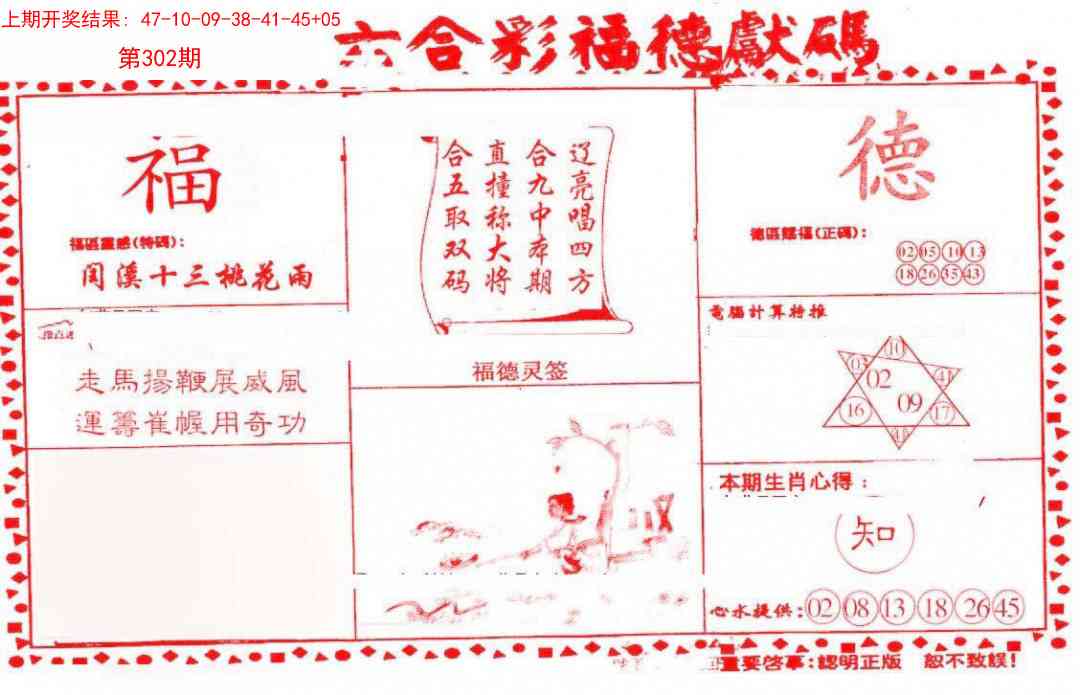 上期开奖结果: 47-10-09-38-41-45+05
第302期
六合彩福德獻碼
福
福區靈感(特碼):
閏溪十三桃花雨
走馬揚鞭展威風
運籌崔幄用奇功
辽亮唱四方
合九中本期
直撞称大将
合五取双码
福德灵签
德
德區賜福(正碼):
02 05 10 13
18 26 35 43
電腦計算特推
10
03 41
02
09
16 17
本期生肖心得:
知
心水提供: 02 08 13 18 26 45
重要啓事:認明正版 恕不致誤!